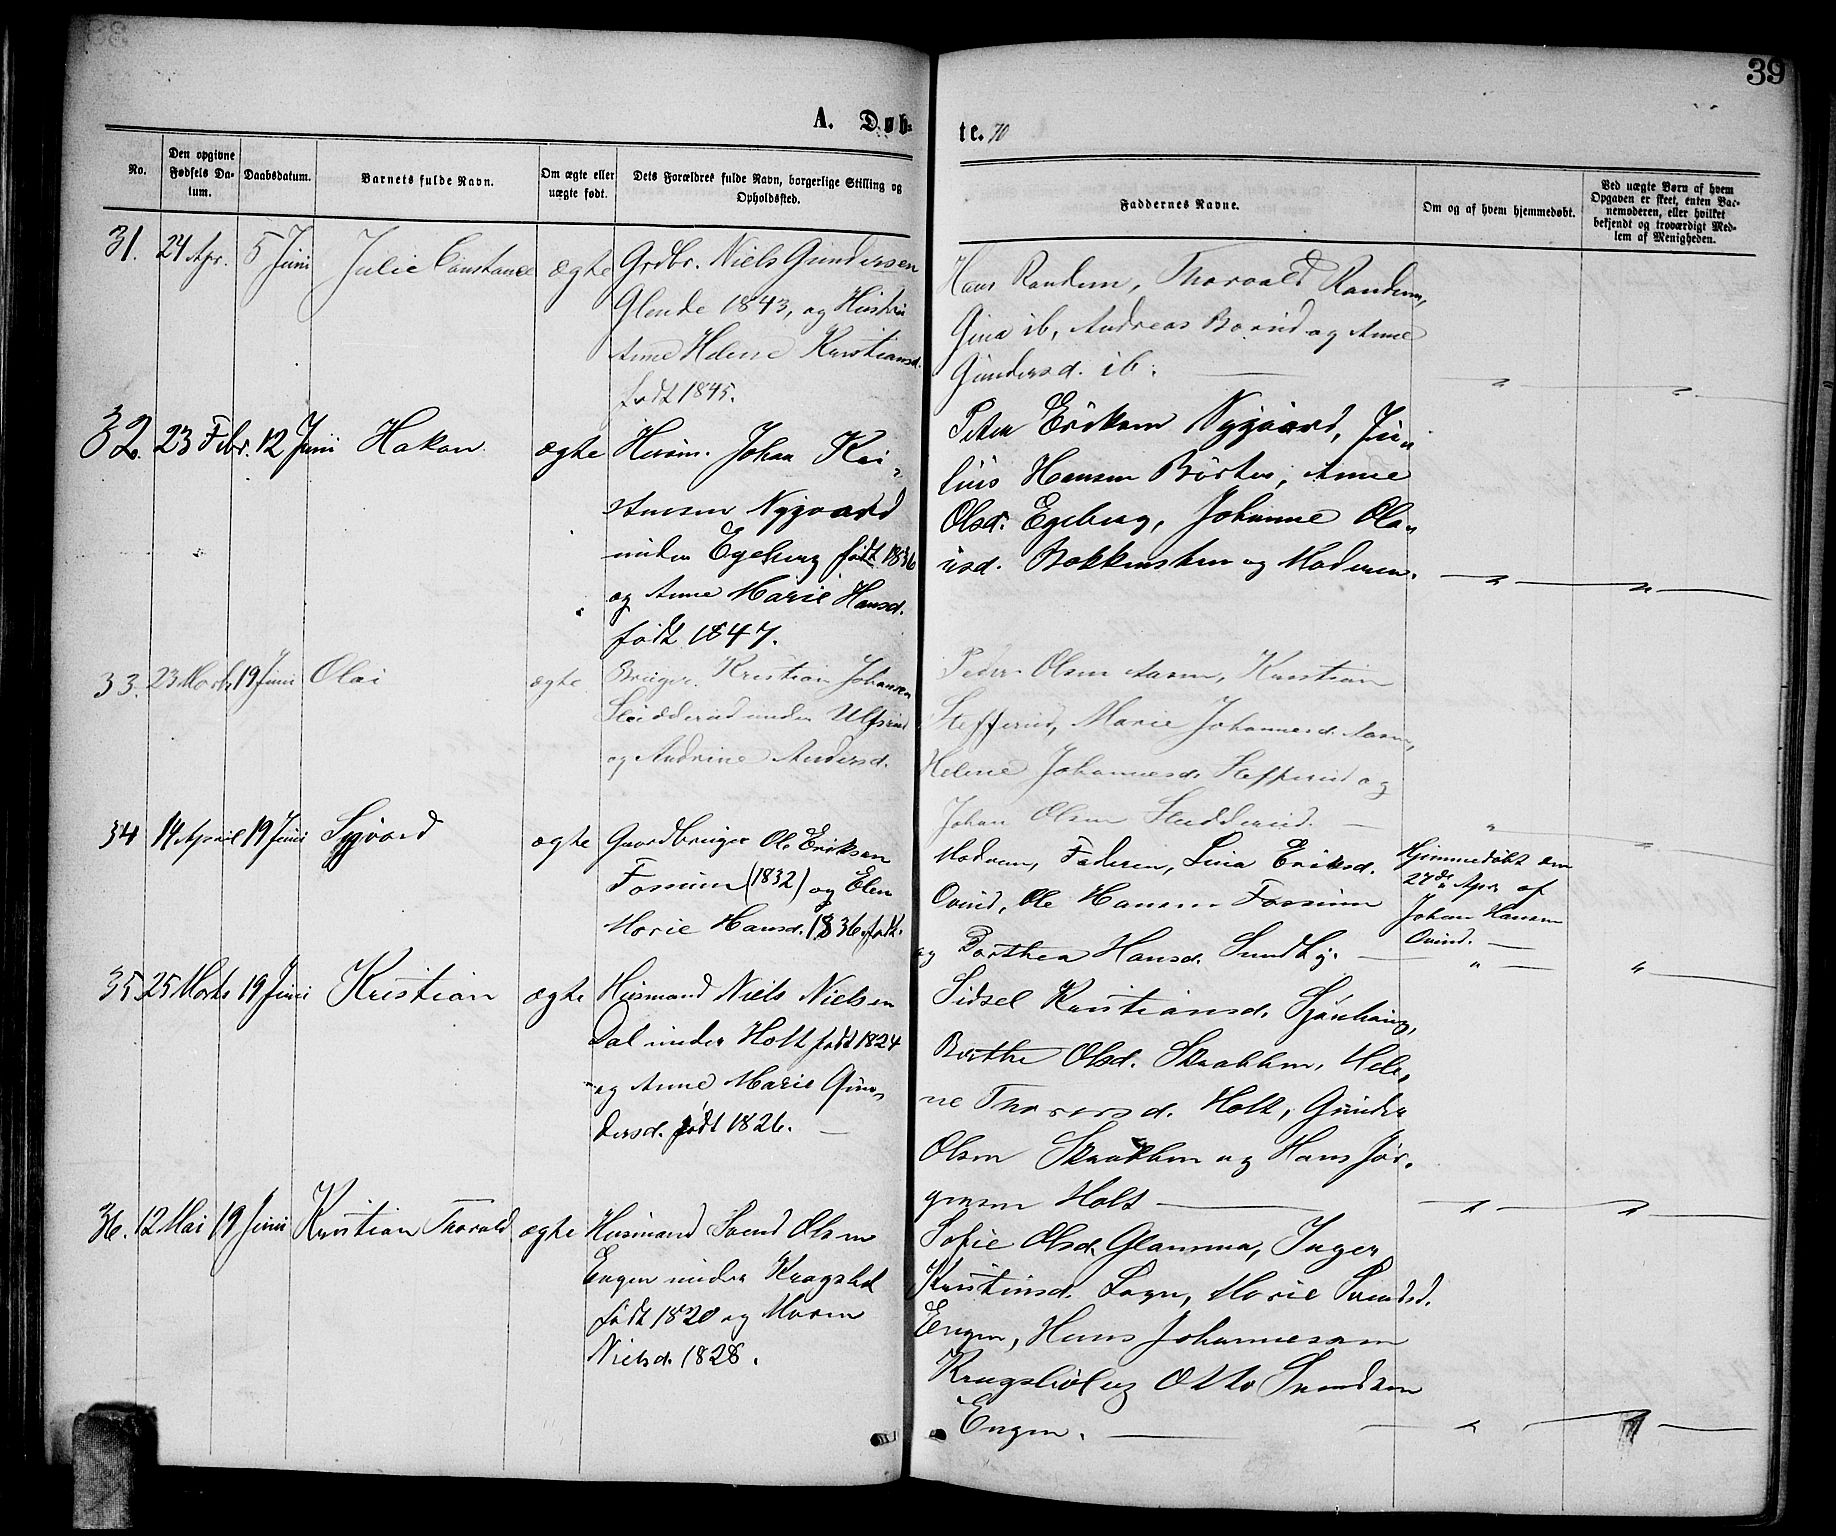 39
A. Døb-
te. 70
No.
Den opgivne Fødsels Datum.
Daabsdatum.
Barnets fulde Navn.
Om ægte eller uægte født.
Dets Forældres fulde Navn, borgerlige Stilling og Opholdssted.
Faddernes Navne.
Om og af hvem hjemmedøbt.
Ved uægte Børn af hvem Opgaven er skeet, enten Barnemoderen, eller hvilket bekjendt og troværdigt Medlem af Menigheden.
31. 24 Apr. 5 Juni Julie Constance ægte Grdbr. Niels Gundersen
Glende 1843, og Hustru
Anne Helene Kristiansd.
født 1845.
Hans Randem, Thorvald Randem,
Gina ib, Andreas Borud og Anne
Gundersd. ib.
32. 23 Febr. 12 Juni Hakon ægte Husm. Johan Kri-
stiansen Nygaard
under Egeberg født 1836
og Anne Marie Hansd.
født 1847.
Peter Eriksen Nygaard, Ju-
lius Hansen Børter, Anne
Olsd. Egeberg, Johanne Ola-
usd. Bakkensten og Moderen.
33. 23 Marts 19 Juni Olai ægte Bruger Kristian Johansen
Sludderud under Ulfsrud
og Andrine Andersd.
Peder Olsen Aasen, Kristian
Stefferud, Marie Johannesd. Aasen,
Helene Johannesd. Stefferud og
Johan Olsen Sludderud.
34 14 April 19 Juni Sigvard ægte Gaardbruger Ole Eriksen
Fossum (1832) og Elen
Marie Hansd. 1836 født.
Modren, Faderen, Lina Eriksd.
Ovind, Ole Hansen Fossum
og Dorthea Hansd. Sundby.
Hjemmedøbt den
27de Apr. af
Johan Hansen
Ovind.
35. 25 Marts 19 Juni Kristian ægte Husmand Niels Nielsen
Dal under Holt født 1824
og Anne Marie Gun-
dersd. født 1826.
Sidsel Kristiansd. Sjøuhaug,
Berthe Olsd. Skrabben, Hele-
ne Thorersd. Holt, Gunder
Olsen Skrabben og Hans Jør-
gensen Holt
36. 12 Mai 19 Juni Kristian Thorvald ægte Husmand Svend Olsen
Engen under Kragsbøl
født 1820 og Maren
Nielsd. 1828.
Sofie Olsd. Glamma, Inger
Kristinsd. Sogn, Marie Svendsd.
Engen, Hans Johannesen
Kragsbøl og Otto Svendsen
Engen.